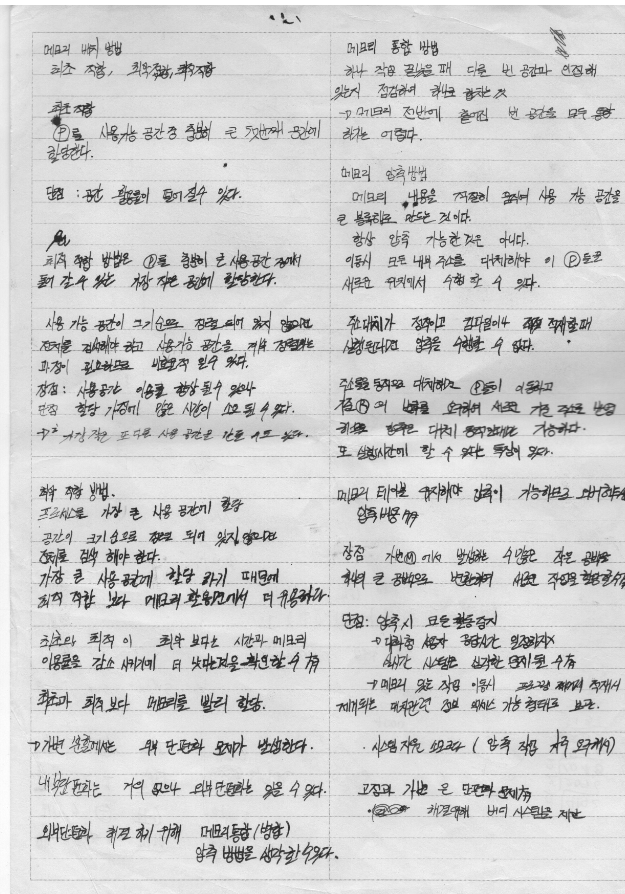 메모리 배치 방법
최초 적합, 최악적합, 최적적합
최초 적합
Ⓟ를 사용가능 공간 중 충분히 큰 첫번째 공간에
할당한다.
단점 : 공간 활용률이 떨어질수 있다.
최적 적합 방법은 Ⓟ를 충분히 큰 사용공간 중에서
들어 갈 수 있는 가장 작은 공간에 할당한다.
사용 가능 공간이 크기순으로 정렬 되어 있지 않으면
전체를 검색해야 하고 사용가능 공간을 계속 정렬하는
과정이 필요하므로 비효율적 일수 있다.
장점 : 사용공간 이용률 향상 될수 있으나
단점 할당 과정에 많은 시간이 소요 될 수 있다.
가장 작은 또다른 사용 공간을 만들 수도 있다.
최악 적합 방법.
프로세스를 가장 큰 사용 공간에 할당
공간이 크기순으로 정렬 되어 있지 않으면
전체를 검색 해야 한다.
가장 큰 사용 공간에 할당 하기 때문에
최적 적합 보다 메모리 활용면에서 더 유용하다.
최초와 최적 이 최악 보다는 시간과 메모리
이용률을 감소 시키기에 더 낫다는것을 확인할 수 有
최초가 최적 보다 메모리를 빨리 할당.
→ 가변 분할에서는 외부 단편화 문제가 발생한다.
내부단편화는 거의 없으나 외부단편화는 있을 수 있다.
외부단편화 해결 하기 위해 메모리통합(병합)
압축 방법을 생각할 수있다.
메모리 통합 방법
하나 작업 끝났을 때 다른 빈 공간과 인접해
있는지 점검하여 하나로 합치는 것
→ 메모리 전반에 흩어진 빈 공간을 모두 통합
하기는 어렵다.
메모리 압축방법
메모리 내용을 적절히 움직여 사용 가능 공간을
큰 블록하나로 만드는 것이다.
항상 압축 가능한것은 아니다.
이동시 모든 내부 주소를 대치해야 이 Ⓟ들은
새로운 위치에서 수행 할 수 있다.
주소대치가 정적이고 컴파일이나 적재할때
실행된다면 압축을 수행할 수 없다.
주소를 동적으로 대치하면 Ⓟ들이 이동하고
가능하다.
또 실행시간에 할 수 있다는 특징이 있다.
압축이 가능하므로
압축비용
장점 가변Ⓜ에서 발생하는 수많은 작은 공백을
하나의 큰 공백으로 변환하여 새로운 작업을 할당할수有
단점: 압축시 모든 활동중지
→ 대화형 사용자 응답시간 일정하지X
실시간 시스템은 심각한 문제될 수 有
→ 메모리 있는 작업 이동시
제거되는 재배치관련 정보 액세스 가능 형태로 보관.
· 시스템 자원 소모크다 ( 압축 작업 자주 요구해서)
고정과 가변 은 단편화 문제有
해결위해 버디 시스템을 제안